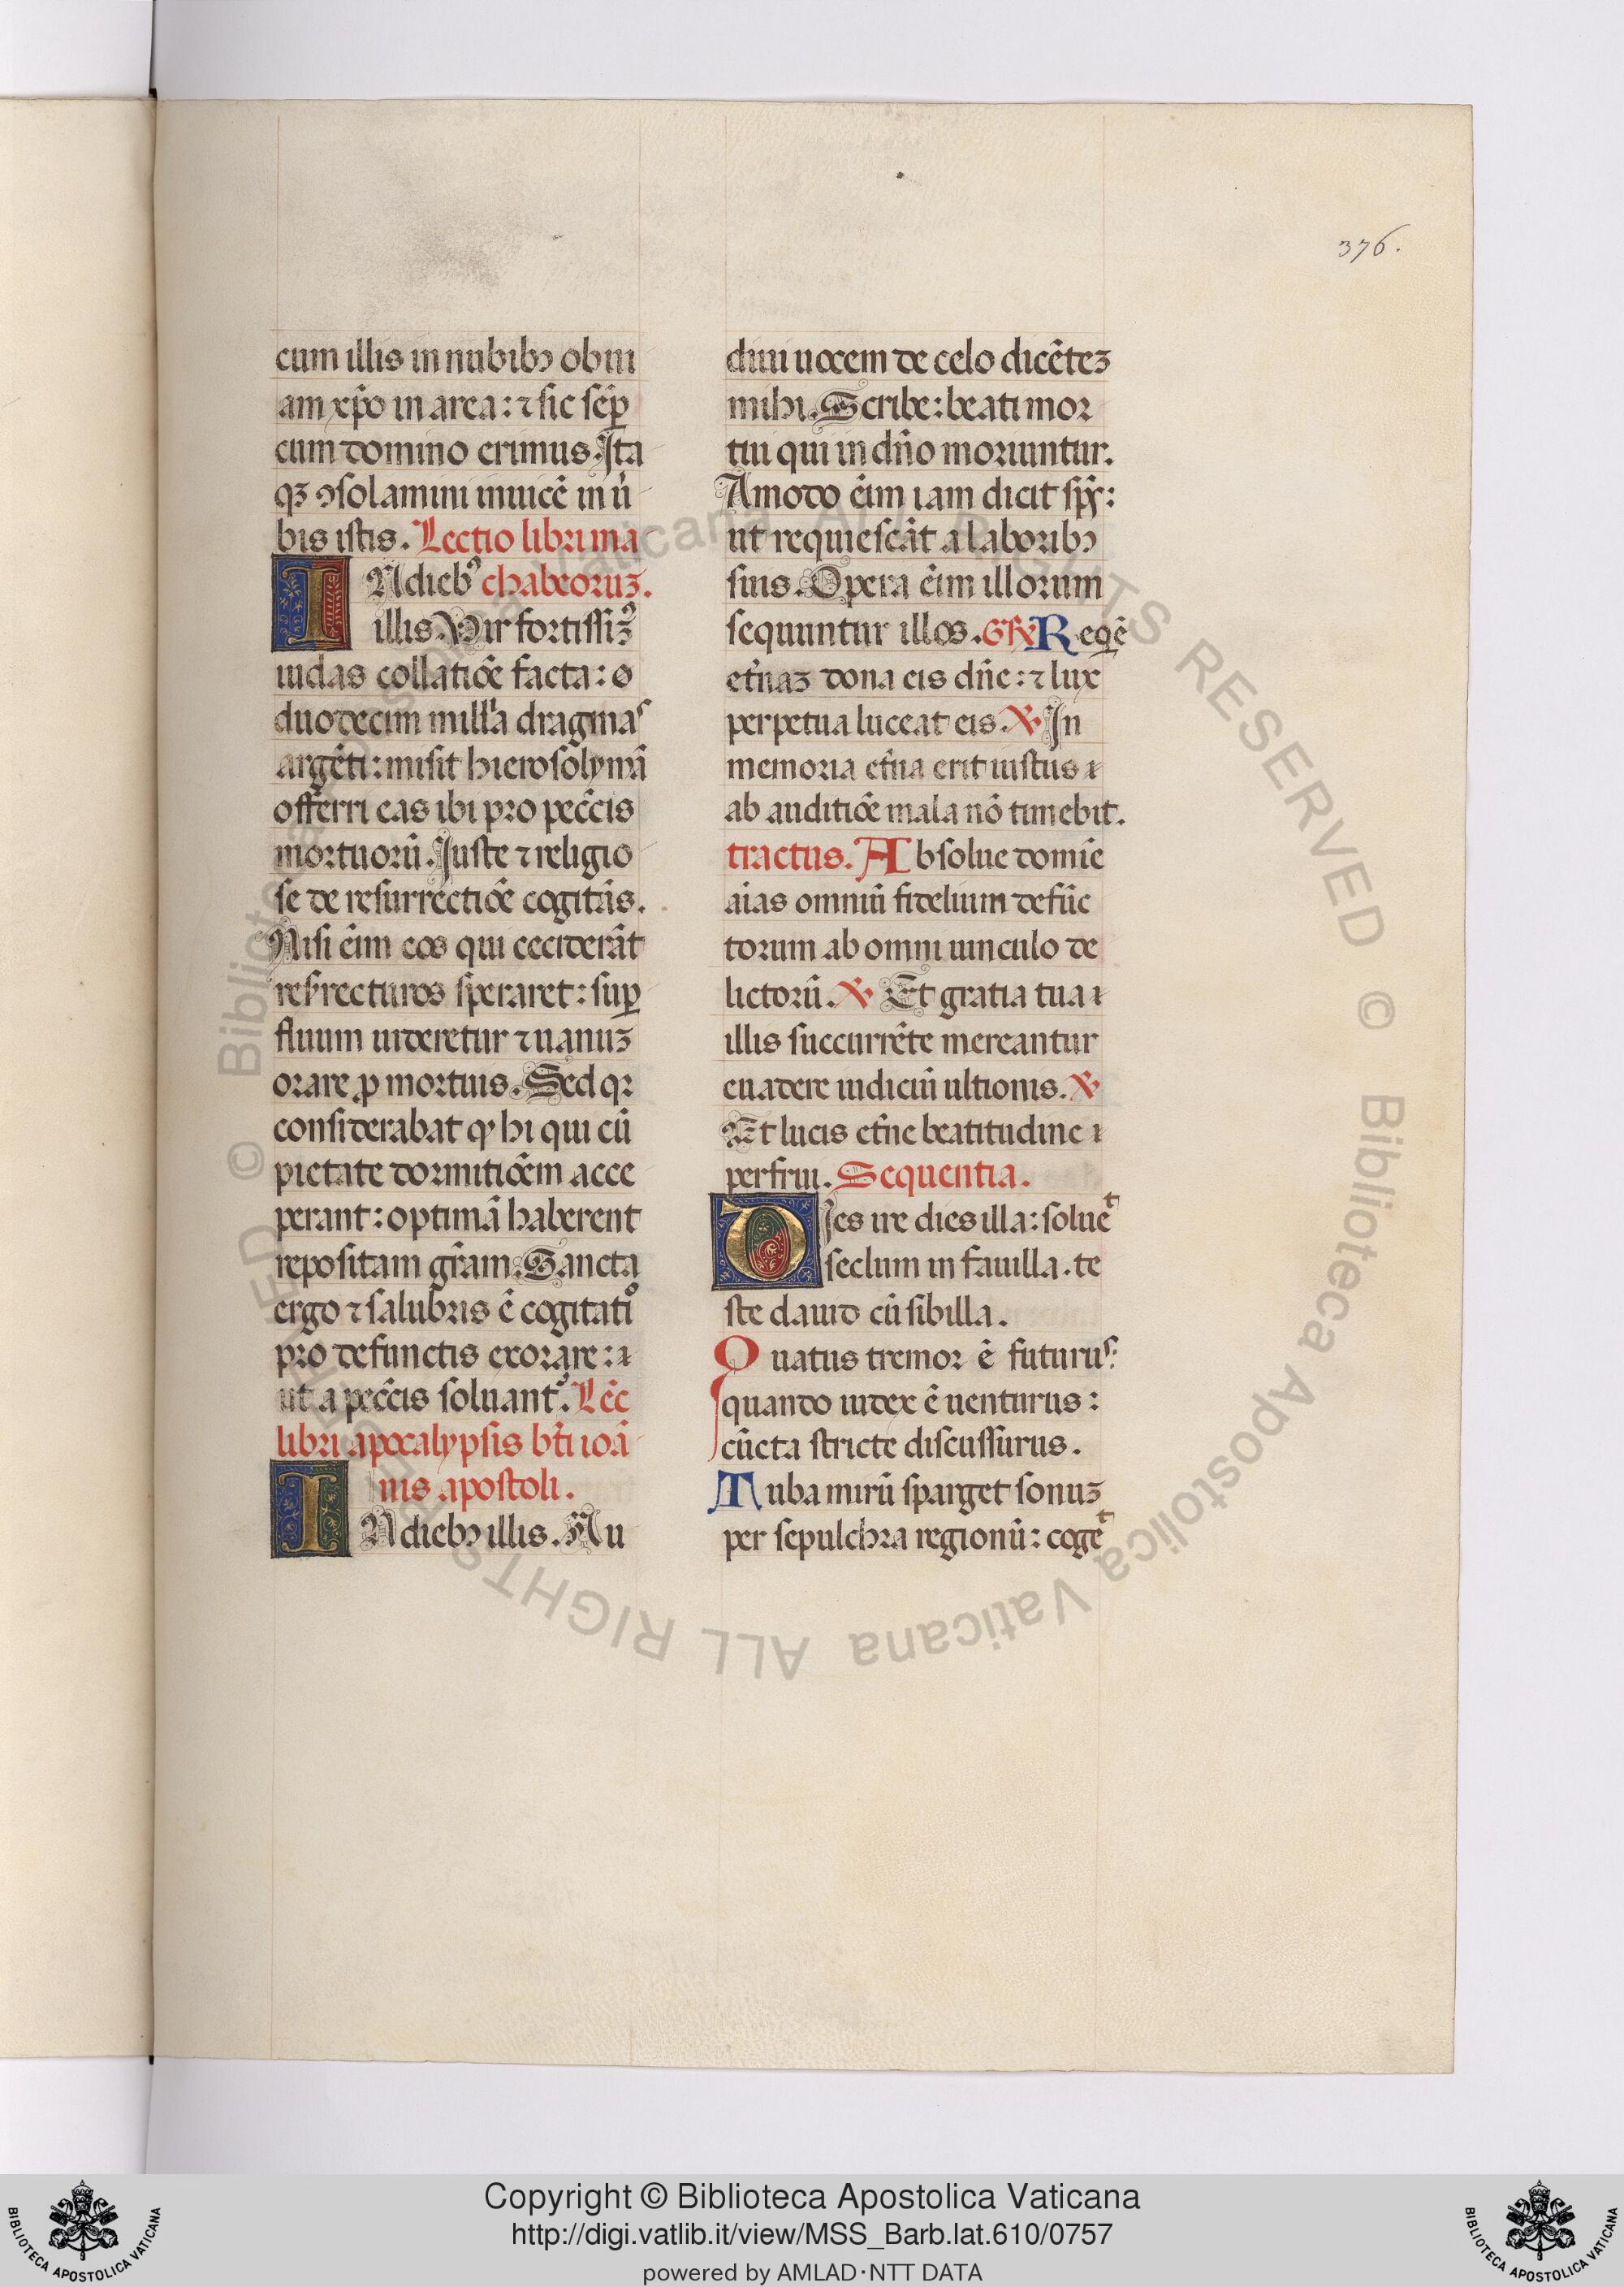 376.
cum illis in nubibꝫ obui
am xp̄o in aera: ⁊ sic sēp̱
cum domino erimus. Ita
qꝫ ꝯsolamini inuicē in ů
bis istis. Lectio libri ma
IN dieb⁹ chabeoruꝫ.
illis. Vir fortissiꝫ⁹
iudas collatiōe facta: o
duodecim mill'a dragmaˢ
argēti: misit hierosolymā
offerri eas ibi pro pecc̄is
mortuorū. Iuste ⁊ religio
se de resurrectiōe cogitās.
Nisi ēim eos qui ceciderāt
resʳrecturos speraret: suꝑ
fluum uideretur ⁊ uanuꝫ
orare ꝓ mortuis. Sed qꝛ
considerabat ꝙ hi qui cū
pietate dormitiōem acce
perant: optimā haberent
repositam gr̄am. Sancta
ergo ⁊ salubris ē cogitati⁰
pro defunctis exorare: ı
ut a pecc̄is soluantʳ. Lēc
libri apocalypsis bt̄i ioā
nis apostoli.
IN diebꝫ illis. Au
diui uocem de celo dicēteꝫ
mihi. Scribe: beati mor
tui qui in dn̄o moriuntur.
Amodo ēim iam dicit sp̄s:
ut requiescāt a laboribꝫ
suis. Opera ēim illorum
sequuntur illos. GR̄ Reqē
et̄naꝫ dona eis dn̄e: ⁊ lux
perpetua luceat eis. ℣ In
memoria et̄na erit iustus ı
ab auditiōe mala nō timebit.
tractus. Absolue domīe
aīas omniū fidelium defūc
torum ab omni uinculo de
lictorū. ℣ Et gratia tua ı
illis succurrēte mereantur
euadere iudiciū ultionis. ℣
Et lucis et̄ne beatitudine ı
perfrui. Sequentia.
Dies ire dies illa: solueᵗ
seclum in fauilla. te
ste dauid cū sibilla.
Quatus tremor ē futuruˢ:
quando iudex ē uenturus:
cūcta stricte discussurus.
Tuba mirū sparget sonuꝫ
per sepulchra regionū: cogeᵗ
© Biblioteca Apostolica Vaticana ALL RIGHTS RESERVED © Biblioteca Apostolica Vaticana ALL RIGHTS RESERVED
BIBLIOTECA APOSTOLICA VATICANA
Copyright © Biblioteca Apostolica Vaticana
http://digi.vatlib.it/view/MSS_Barb.lat.610/0757
powered by AMLAD·NTT DATA
BIBLIOTECA APOSTOLICA VATICANA